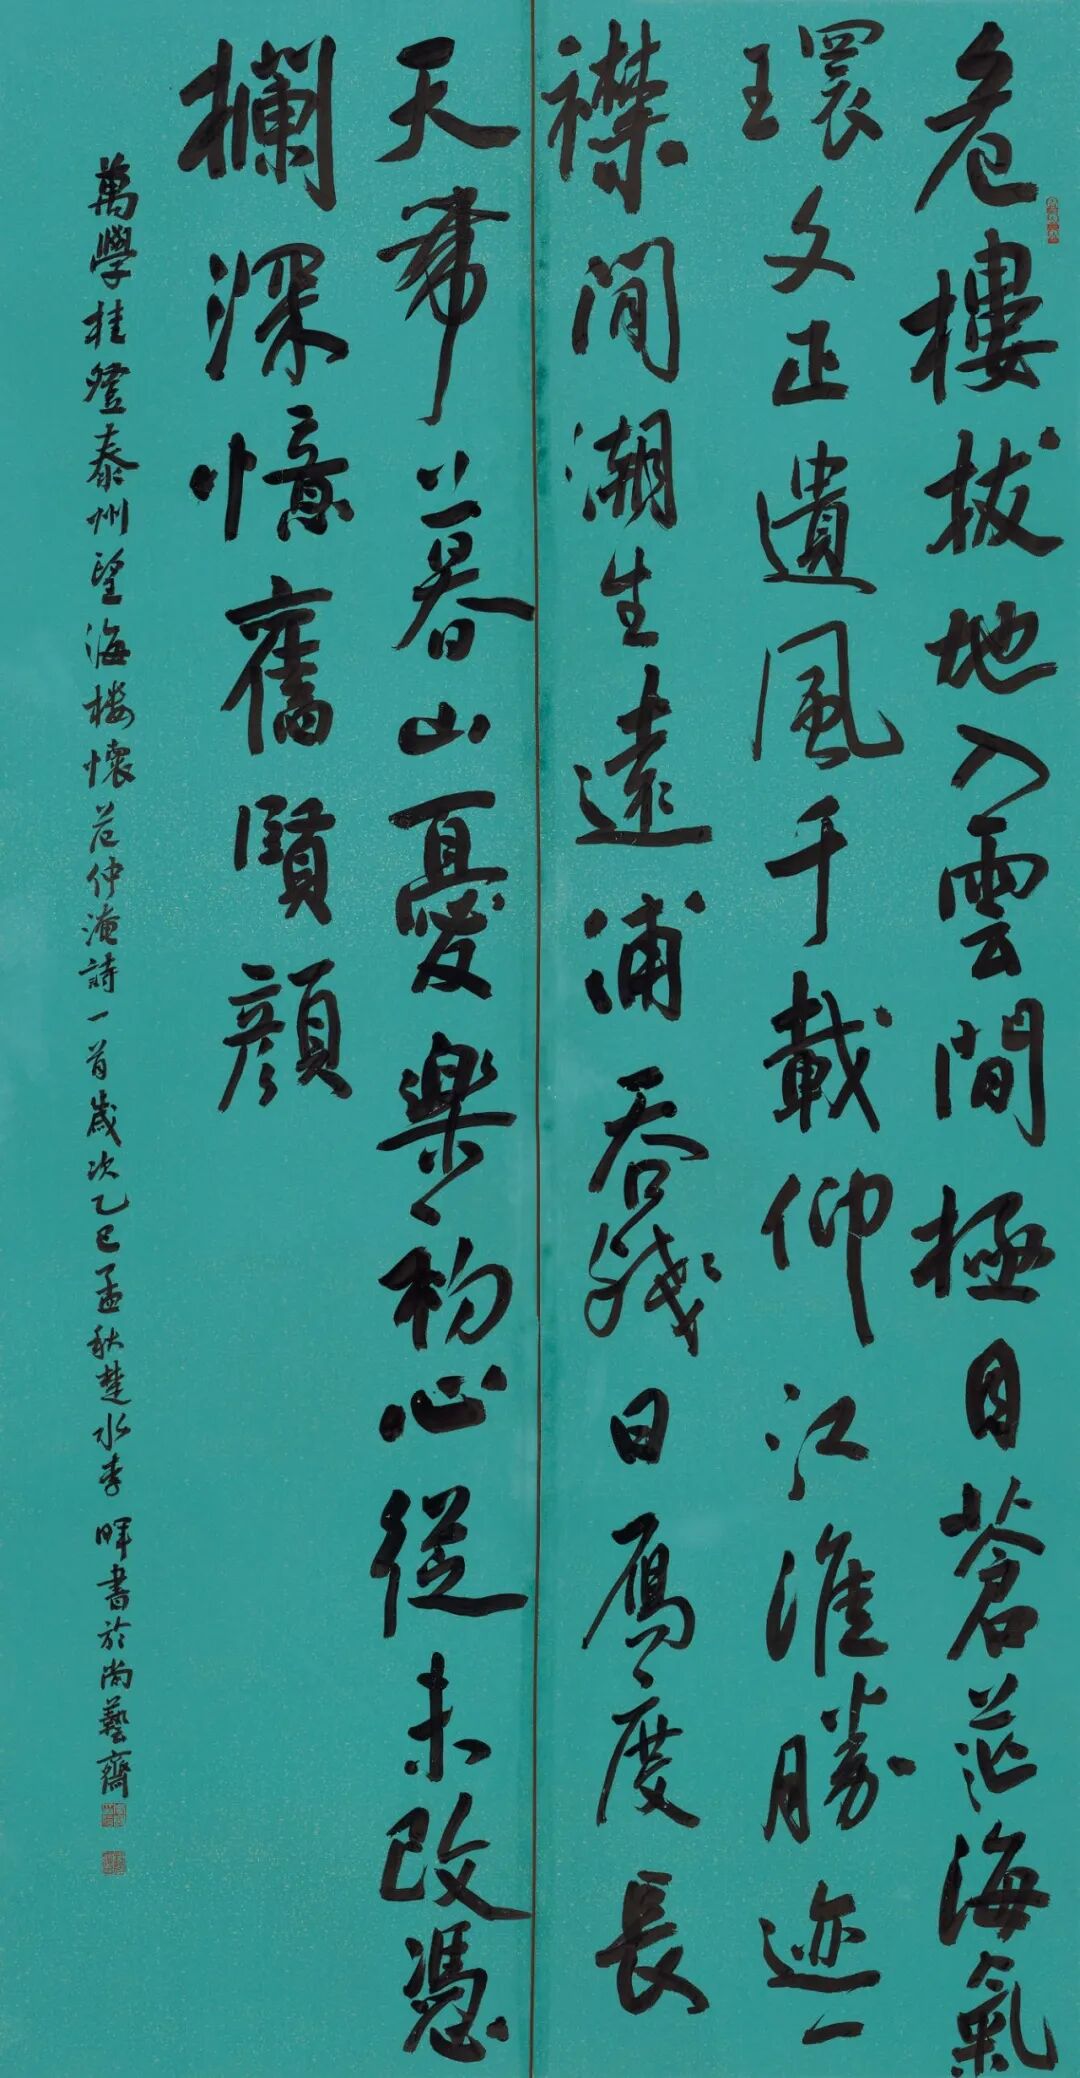 危樓拔地入雲間極目蒼茫海氣
環文正遺風千載仰江淮勝迹一
襟閒潮生遠浦吞殘日雁度長
天帶暮山憂樂初心從未改憑
攔深憶舊賢顏
萬學桂登泰州望海楼懷范仲淹詩一首歲次乙巳孟秋楚水李暉書於尚藝齋